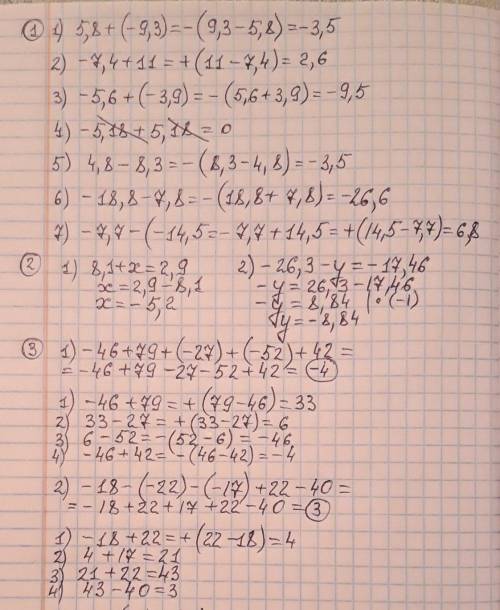 ① 1) 5,8 + (-9,3) = -(9,3 - 5,8) = -3,5
2) -7,4 + 11 = +(11 - 7,4) = 2,6
3) -5,6 + (-3,9) = -(5,6 + 3,9) = -9,5
4) -5,18 + 5,18 = 0
5) 4,8 - 8,3 = -(8,3 - 4,8) = -3,5
6) -18,8 - 7,8 = -(18,8 + 7,8) = -26,6
7) -7,7 - (-14,5 = -7,7 + 14,5 = +(14,5 - 7,7) = 6,8
② 1) 8,1 + x = 2,9
x = 2,9 - 8,1
x = -5,2
2) -26,3 - y = -17,46
-y = 26,3 - 17,46
-y = 8,84 | • (-1)
y = -8,84
③ 1) -46 + 79 + (-27) + (-52) + 42 =
= -46 + 79 - 27 - 52 + 42 = -4
1) -46 + 79 = +(79 - 46) = 33
2) 33 - 27 = +(33 - 27) = 6
3) 6 - 52 = -(52 - 6) = -46
4) -46 + 42 = -(46 - 42) = -4
2) -18 - (-22) - (-17) + 22 - 40 =
= -18 + 22 + 17 + 22 - 40 = 3
1) -18 + 22 = +(22 - 18) = 4
2) 4 + 17 = 21
3) 21 + 22 = 43
4) 43 - 40 = 3